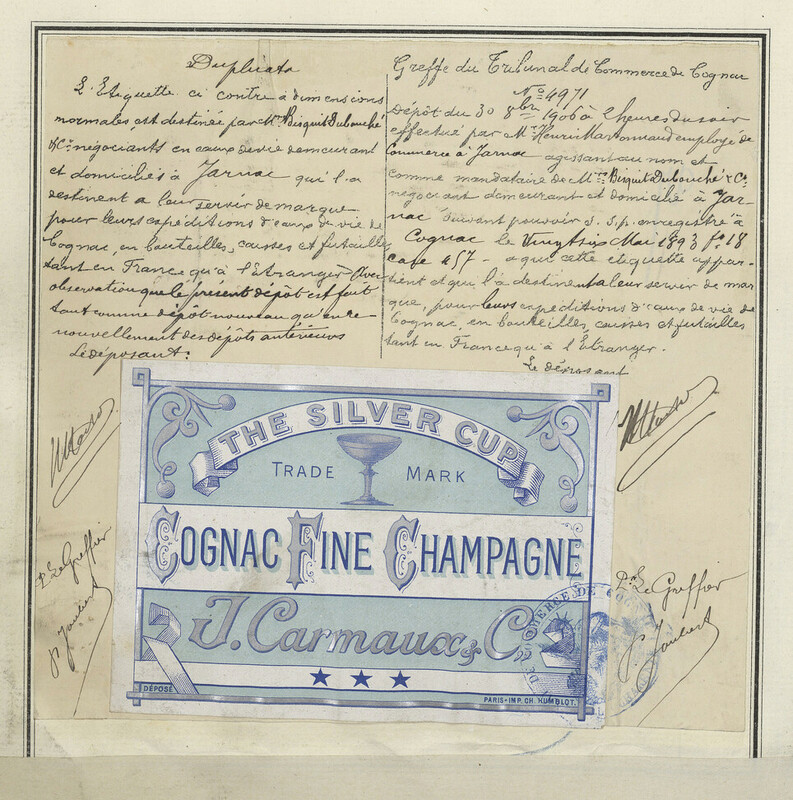 Duplicata
L'Etiquette ci contre à dimensions
normales, est destinée par Mrs Bisquit Dubouché
& Co négociants en eaux de vie demeurant
et domiciliés à Jarnac qu'il a
destinent a leur servir de marque
pour leurs expéditions d'eaux de vie de
Cognac, en bouteilles, caisses et futailles
tant en France qu'à l'Etranger. Avec
observation que le présent dépôt est fait
tant comme dépôt nouveau qu'en re-
nouvellement des dépôts antérieurs
Le déposant:
Greffe du Tribunal de Commerce de Cognac
No 4971
Dépôt du 30 8bre 1906 à heures du soir
effectué par Mr Henri employé de
Commerce à Jarnac agissant au nom et
comme mandataire de Mrs Bisquit Dubouché & Co
négociant demeurant et domicilié à Jar-
nac suivant pouvoir s. s.p. enregistré à
Cognac le Vingt six Mai 1893 fo 18
case 457 - a que cette etiquette appar-
tient et qu'il a destinent a leur servir de mar
que, pour leurs expéditions d'eaux de vie de
Cognac, en bouteilles, caisses et futailles
tant en France qu'à l'Etranger.
Le déposant
THE SILVER CUP
TRADE MARK
COGNAC FINE CHAMPAGNE
J. Carmaux & Co
DÉPOSÉ
PARIS-IMP. CH. HUMBLOT.
DE COMMERCE DE COGNAC
Pr Le Greffier
P. Joubert
Pr Le Greffier
P. Joubert